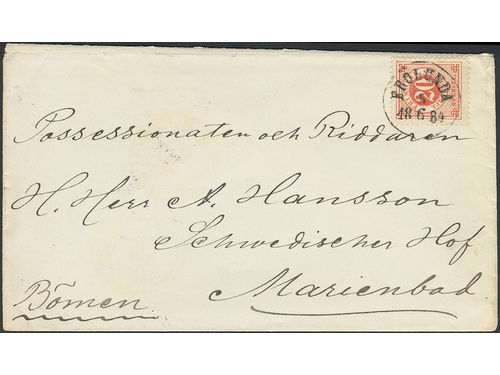 FRÖLUNDA
5
18 6 84
20
Possessionaten och Riddaren
H. Herr A. Hansson
Schwedischer Hof
Marienbad.
Bömen.